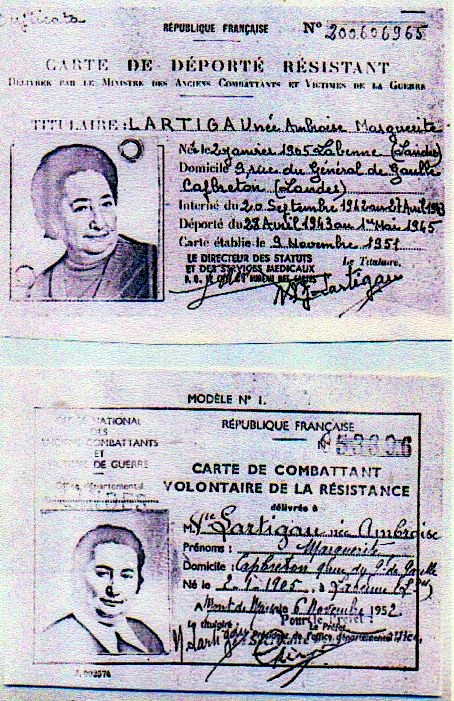 Duplicata
RÉPUBLIQUE FRANÇAISE
N° 200606965
CARTE DE DÉPORTÉ RÉSISTANT
DÉLIVRÉE PAR LE MINISTRE DES ANCIENS COMBATTANTS ET VICTIMES DE LA GUERRE
TITULAIRE : LARTIGAU née Ambroise Marguerite
Née le 2 janvier 1905 Labenne (Landes)
Domicile 9, rue du Général de Gaulle
Capbreton (Landes)
Interné du 20 Septembre 1942 au 27 Avril 1943
Déporté du 28 Avril 1943 au 1er Mai 1945
Carte établie le 9 Novembre 1951
LE DIRECTEUR DES STATUTS
ET DES SERVICES MEDICAUX
Le Titulaire,
BUREAU DES CARTES
M Lartigau
MODÈLE N° 1.
OFFICE NATIONAL
DES
ANCIENS COMBATTANTS
ET
VICTIMES DE GUERRE
Office départemental
LANDES
RÉPUBLIQUE FRANÇAISE
N°
CARTE DE COMBATTANT
VOLONTAIRE DE LA RÉSISTANCE
délivrée à
M Lartigau née Ambroise
Prénoms : Marguerite
Domicile : Capbreton 9 rue du Gl de Gaulle
Né le 2-1-1905 à Labenne
A Mont de Marsan le 6 Novembre 1952
Le titulaire :
Pour le Préfet :
Le Préfet
de l'office départemental
M Lartigau